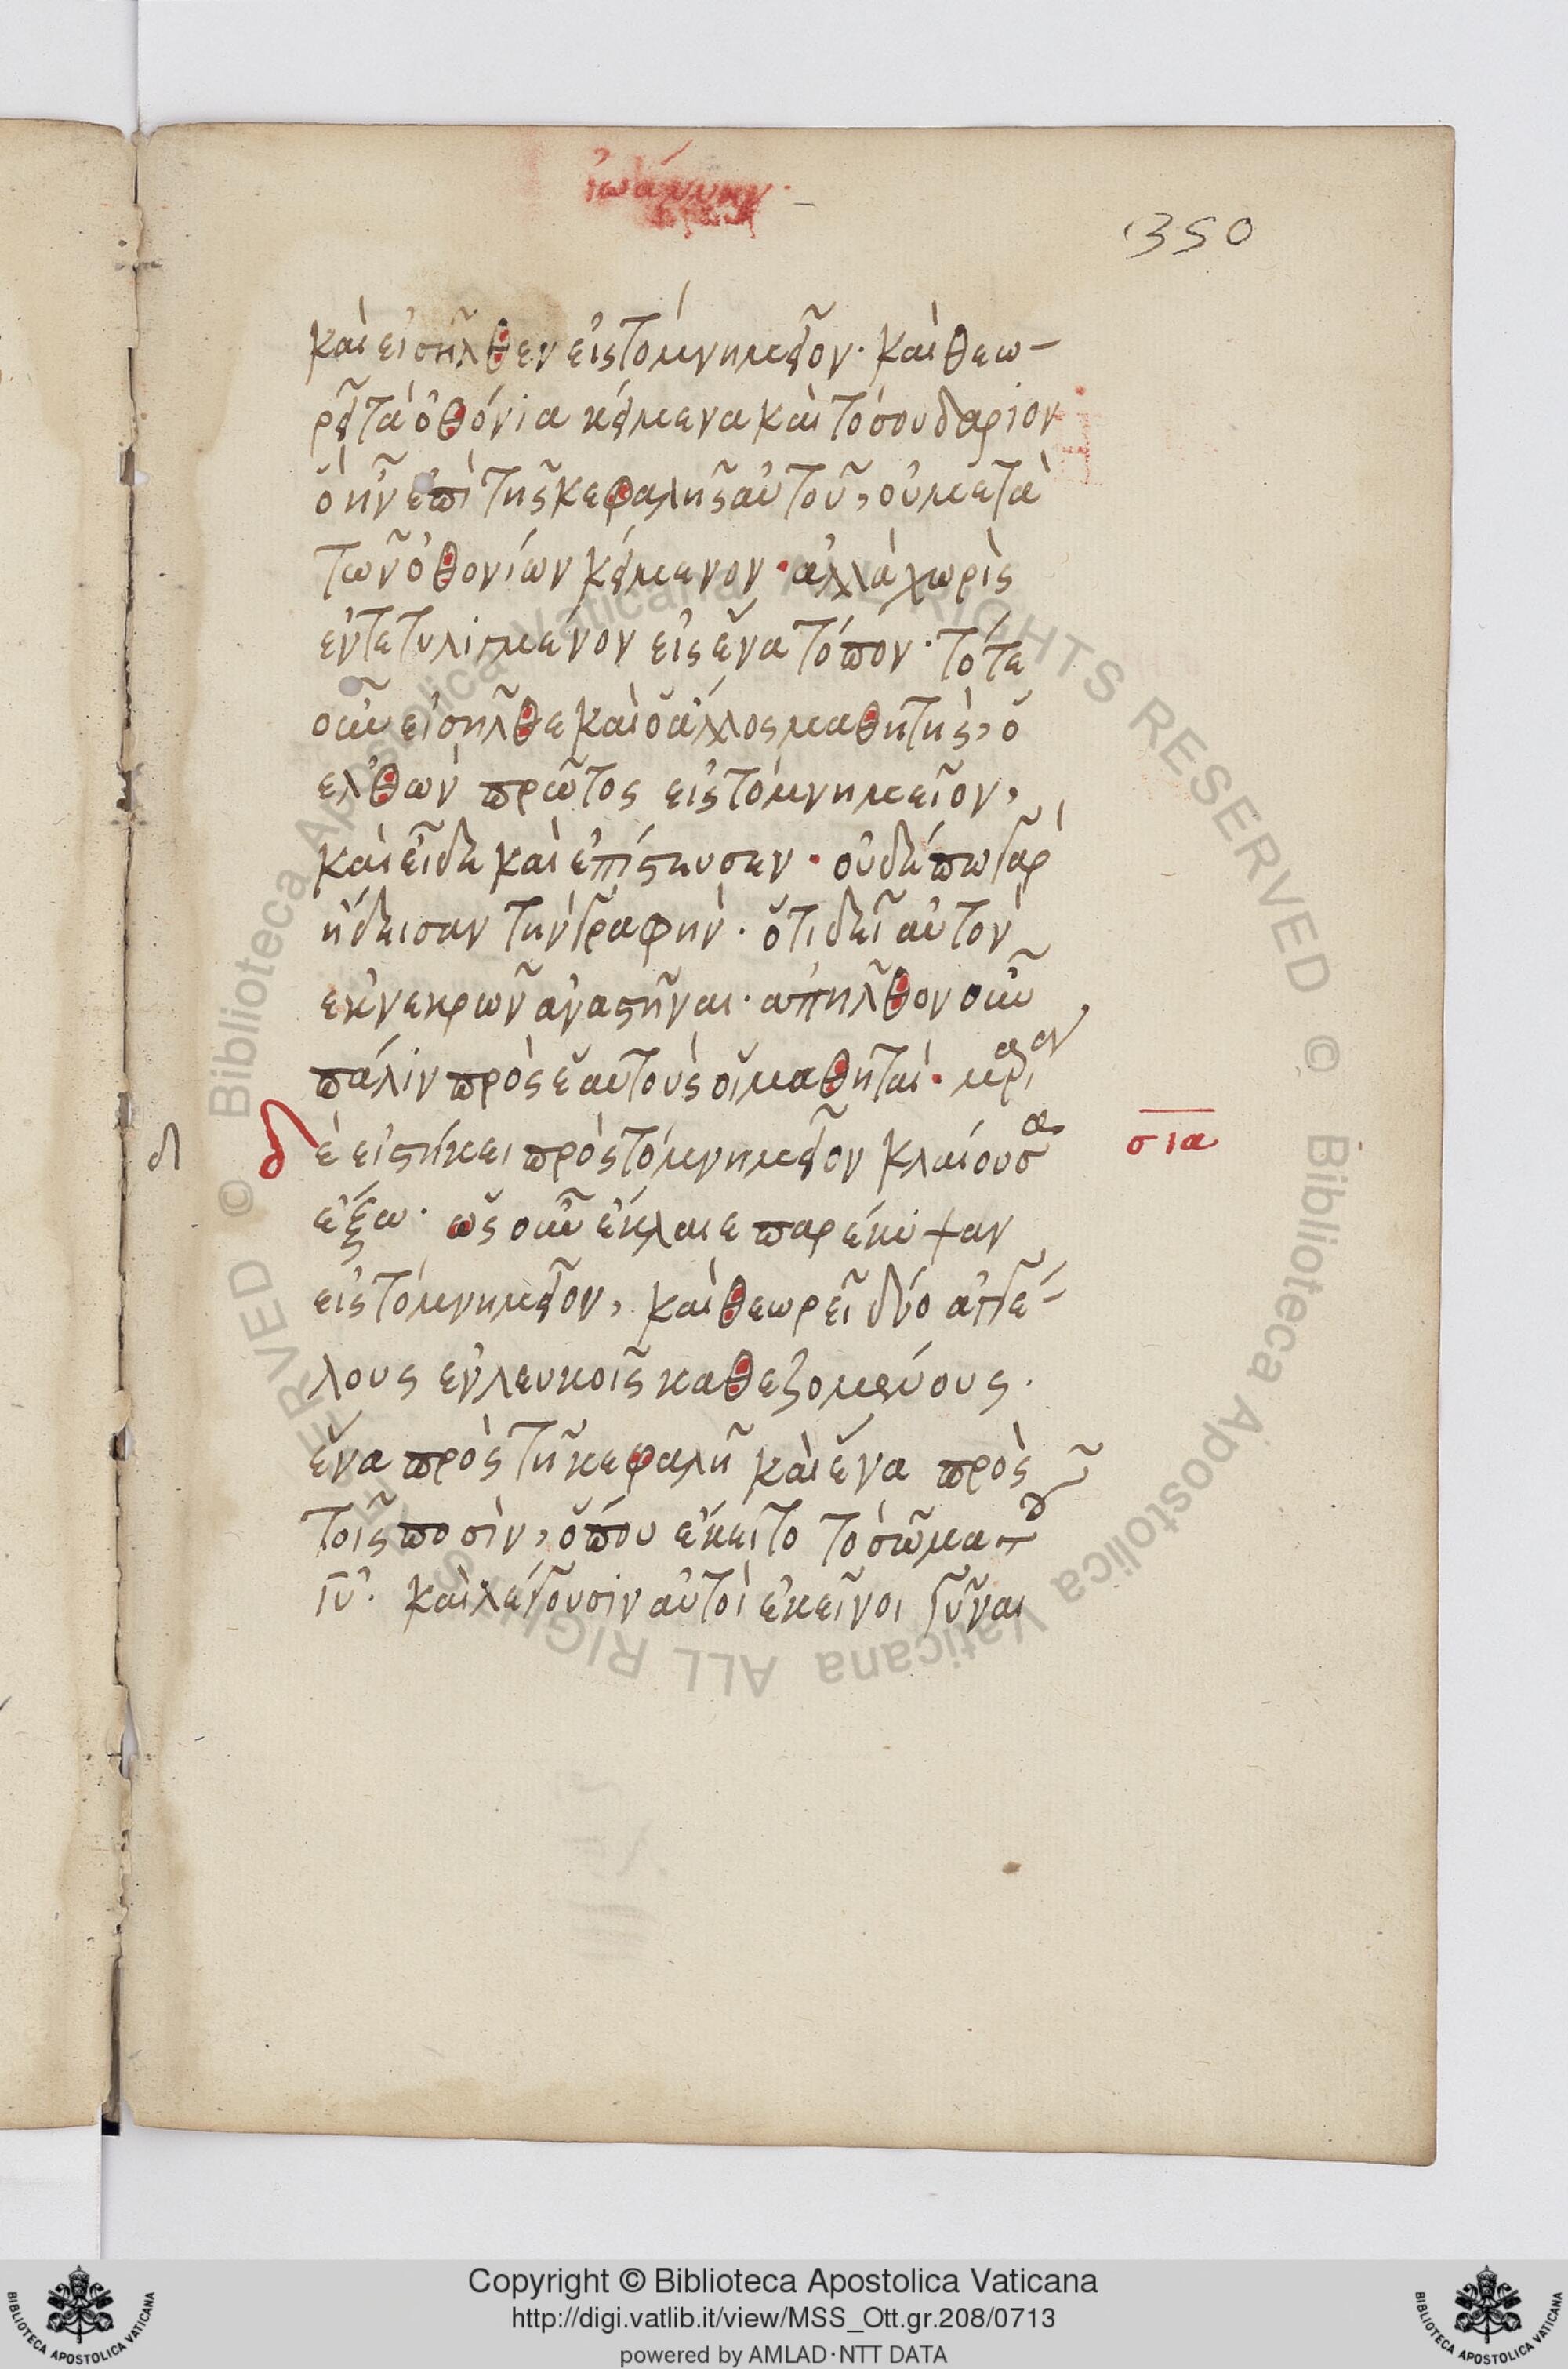 ἰωάννην·
350
καὶ εἰσῆλθεν εἰς τὸ μνημεῖον· καὶ θεω-
ρεῖ τὰ ὀθόνια κείμενα καὶ τὸ σουδάριον
ὃ ἦν ἐπὶ τῆς κεφαλῆς αὐτοῦ, οὐ μετὰ
τῶν ὀθονίων κείμενον· ἀλλὰ χωρὶς
ἐντετυλιγμένον εἰς ἕνα τόπον· τότε
οὖν εἰσῆλθε καὶ ὁ ἄλλος μαθητὴς, ὁ
ἐλθὼν πρῶτος εἰς τὸ μνημεῖον,
καὶ εἶδε καὶ ἐπίστευσεν· οὐδέπω γὰρ
ᾔδεισαν τὴν γραφὴν· ὅτι δεῖ αὐτὸν
ἐκ νεκρῶν ἀναστῆναι· ἀπῆλθον οὖν
πάλιν πρὸς ἑαυτοὺς οἱ μαθηταὶ· μαρία
δὲ εἱστήκει πρὸς τὸ μνημεῖον κλαίουσα
σια
ἔξω· ὡς οὖν ἔκλαιε παρέκυψεν
εἰς τὸ μνημεῖον, καὶ θεωρεῖ δύο ἀγγέ-
λους ἐν λευκοῖς καθεζομένους·
ἕνα πρὸς τῇ κεφαλῇ καὶ ἕνα πρὸς
τοῖς ποσὶν, ὅπου ἔκειτο τὸ σῶμα τοῦ
ιυ· καὶ λέγουσιν αὐτῇ ἐκεῖνοι γύναι
Copyright © Biblioteca Apostolica Vaticana
http://digi.vatlib.it/view/MSS_Ott.gr.208/0713
powered by AMLAD·NTT DATA
BIBLIOTECA APOSTOLICA VATICANA
BIBLIOTECA APOSTOLICA VATICANA
© Biblioteca Apostolica Vaticana ALL RIGHTS RESERVED
© Biblioteca Apostolica Vaticana ALL RIGHTS RESERVED